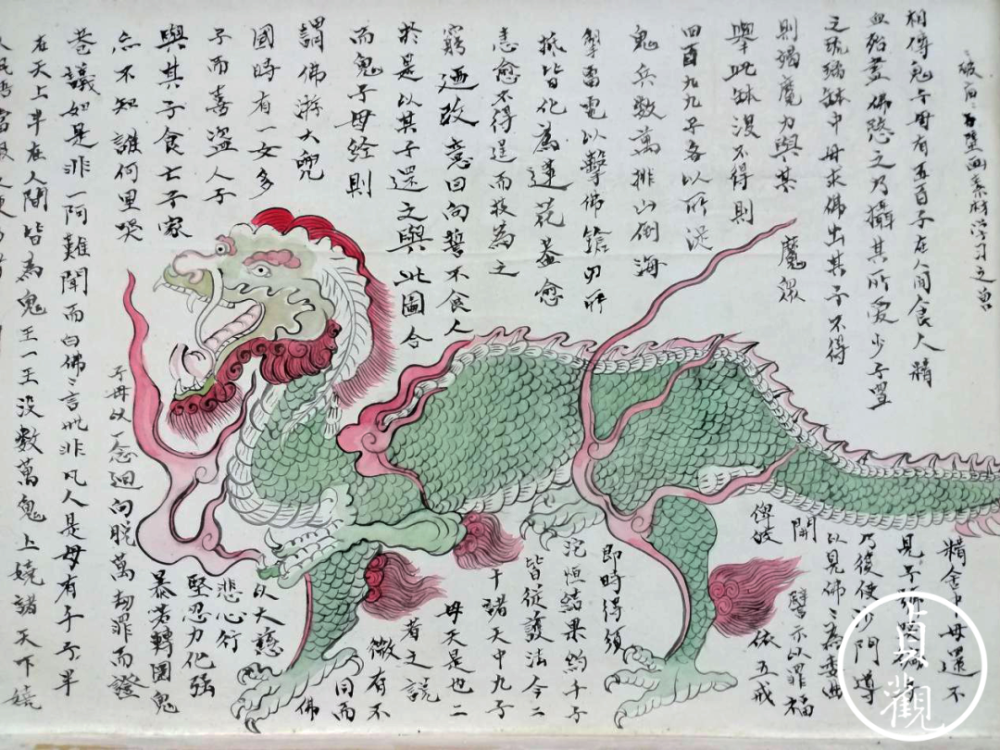 壁画素材学习之
相傳鬼子母有五百子在人间食人將
血殆盡佛愍之乃攝其所愛少子置
之琉璃缽中母求佛出其子不得
則竭魔力與其魔眾
舉此缽漫不得則
四百九九子各以所泥
鬼兵数萬排山倒海
掣雷電以擊佛鎗刃所
抵皆化為蓮花葢愈
恚愈不得逞而技為之
窮迺改意回向誓不食人
於是以其子還之與此圖合
而鬼子母经則
謂佛游大兜
國時有一女多
子而喜盗人子
與其子食亡子家
亦不知誰何里哭
巷議如是非一阿難聞而白佛言此非凡人是母有千子半
在天上半在人間皆為鬼王一王没数萬鬼上嬈諸天下嬈
人民
精舍中母還不
見子
乃復使沙門導
以見佛之為委曲
開譬示以罪福
俾妓依五戒
即時得须
沱恒结果約千子
皆從護法今二
十諸天中九子
母天是也二
者之説
微有不
同而佛
以大慈
悲心行
堅忍力化强
暴若轉圜鬼
子母以一念迴向脱萬劫罪而證
貞觀